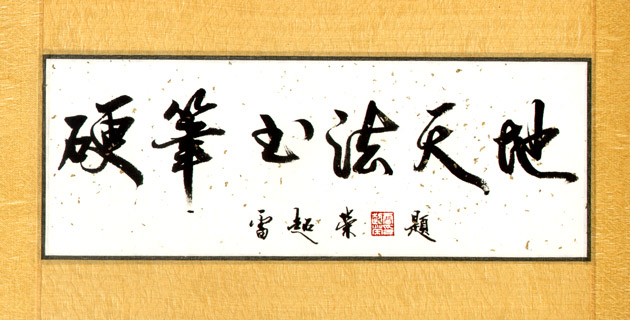 硬筆书法天地
雷超荣題